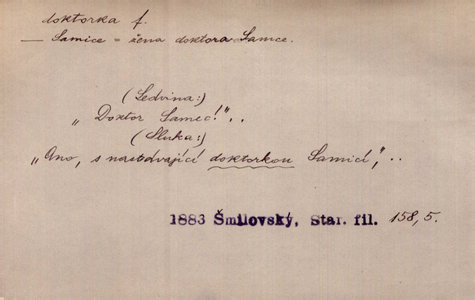 doktorka f.
— Samice = žena doktora Samce.
(Ledvina:)
„Doktor Samec!"..
(Sluka:)
„Ano, s nastávající doktorkou Samicí",..
1883 Šmilovský, Star. fil. 158,5.